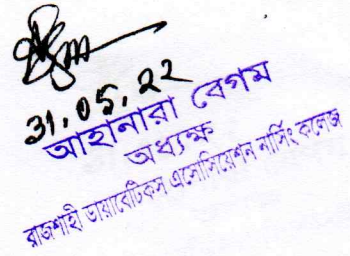 31.05.22
আহানারা বেগম
অধ্যক্ষ
রাজশাহী ডায়াবেটিকস এসোসিয়েশন নার্সিং কলেজ